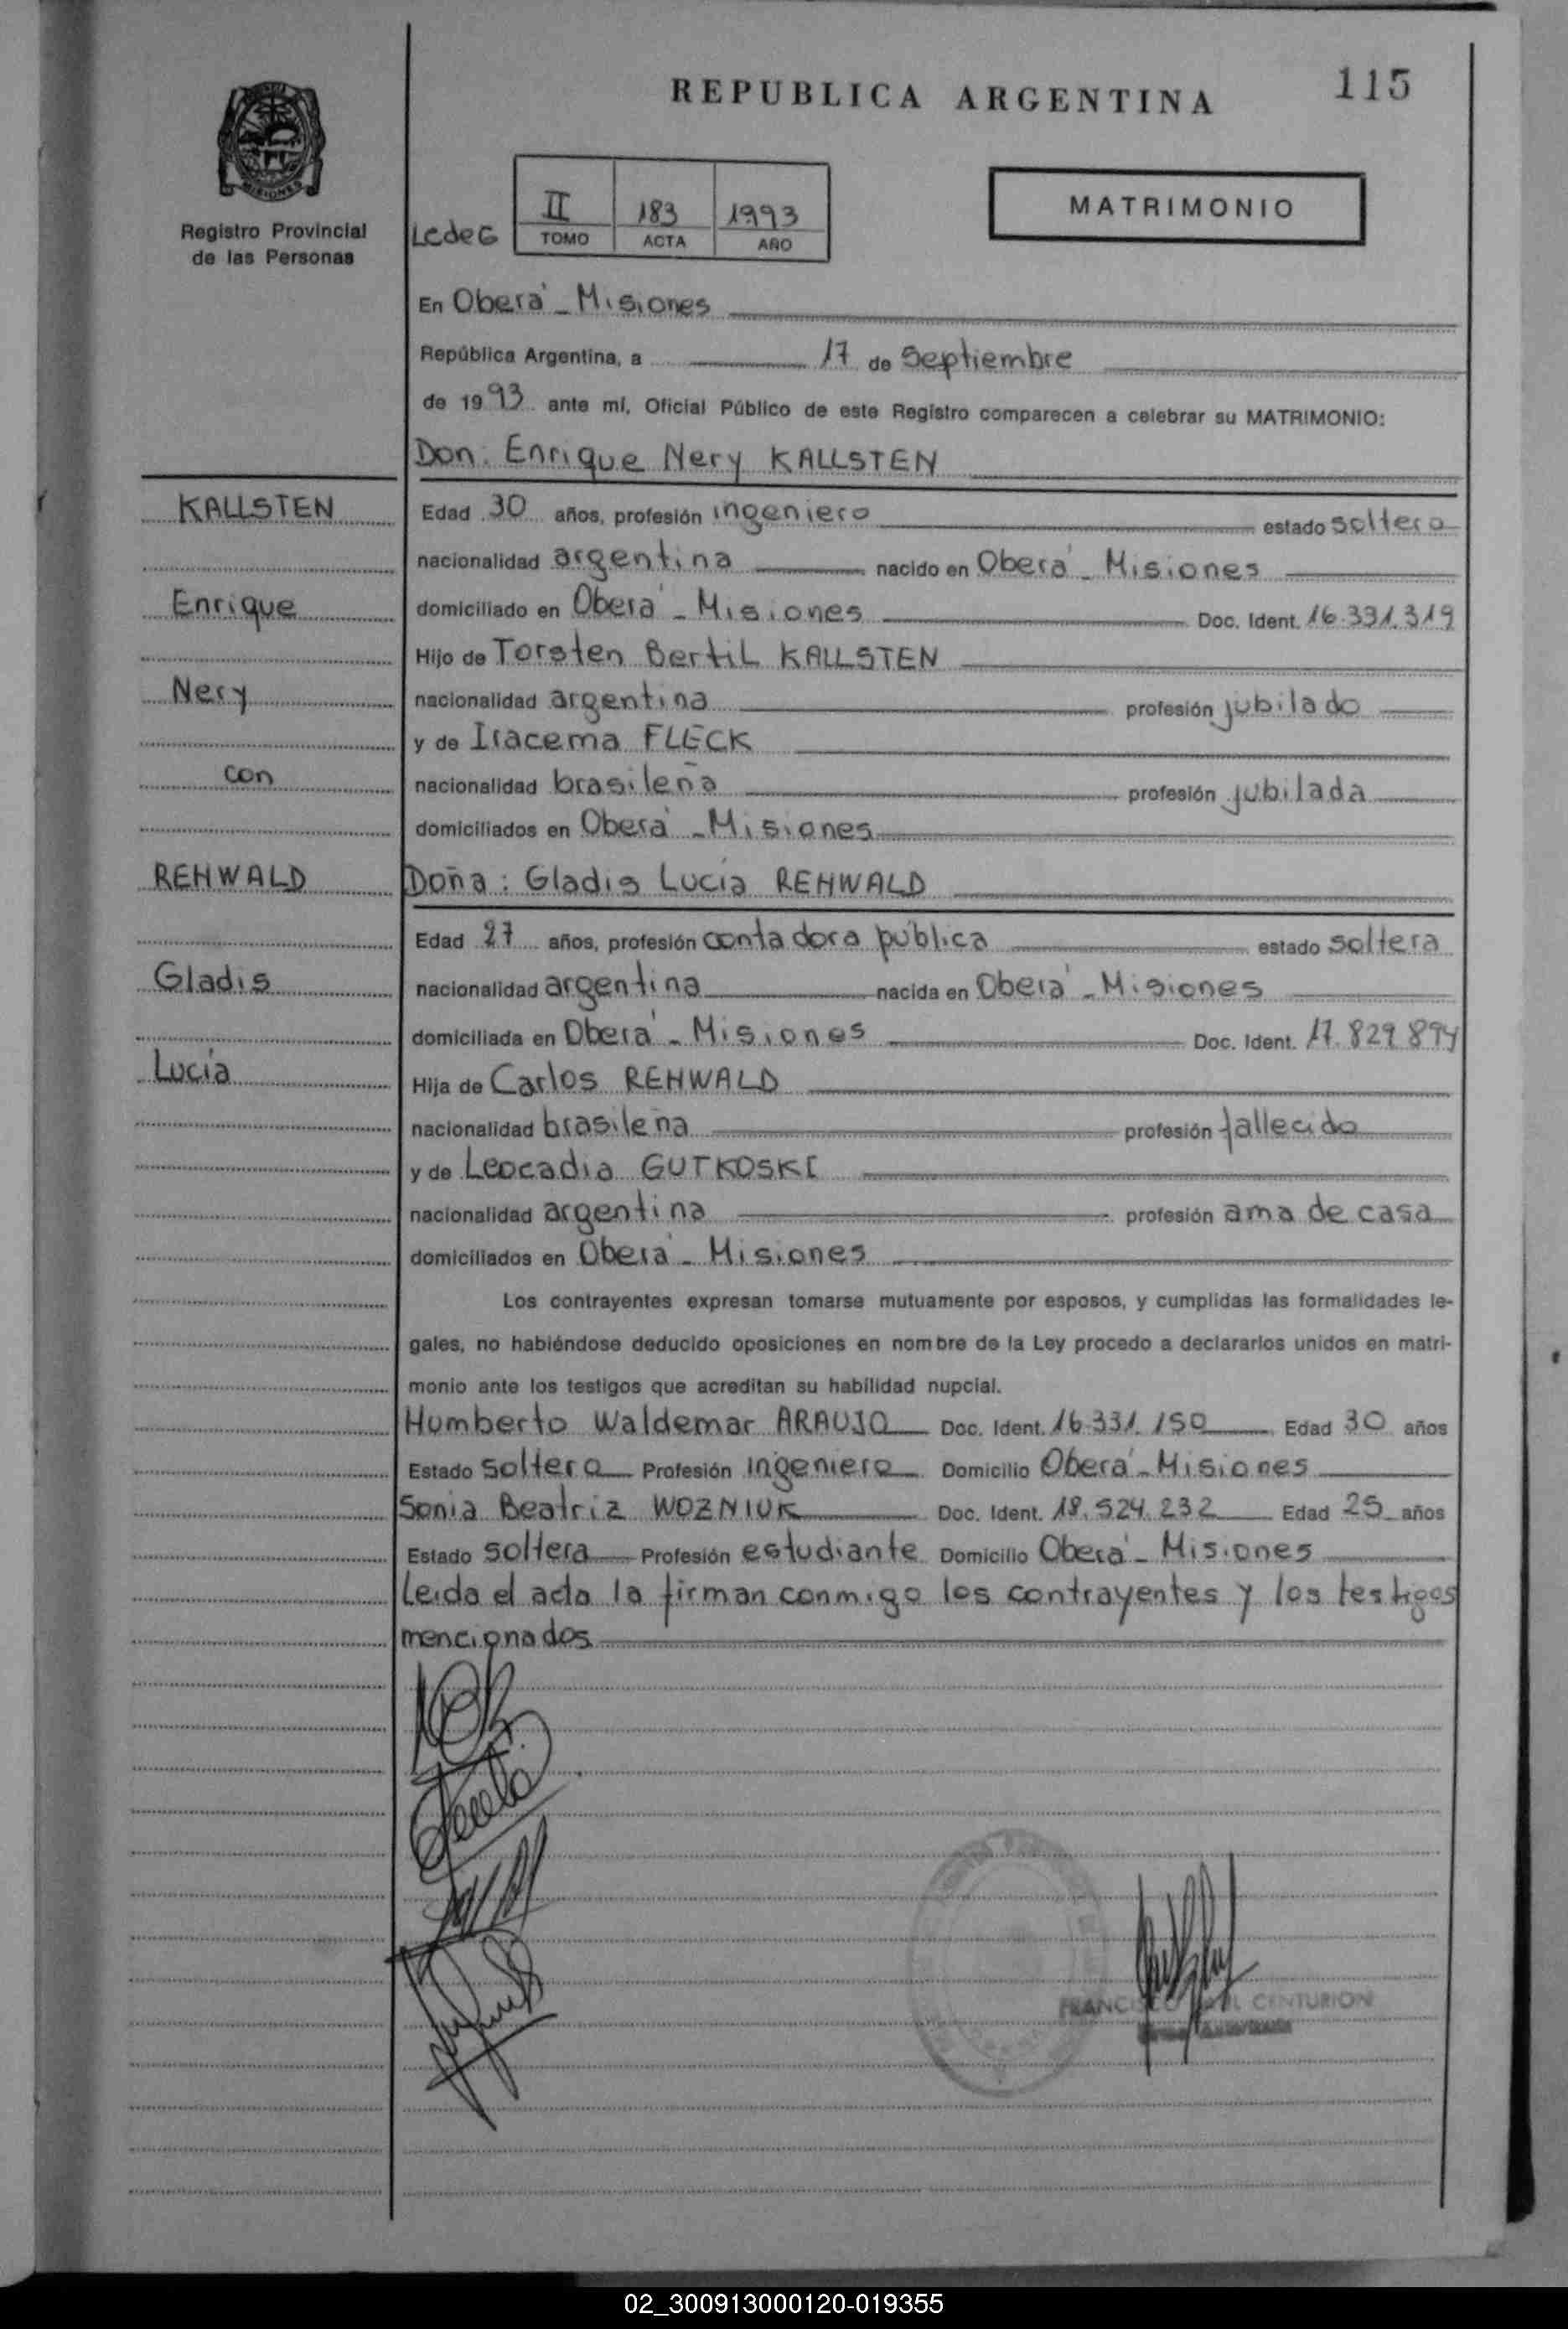 115
REPUBLICA ARGENTINA
MISIONES
Registro Provincial
de las Personas
II 183 1993
TOMO ACTA AÑO
MATRIMONIO
En Oberá - Misiones
República Argentina, a 17 de Septiembre
de 1993 ante mí, Oficial Público de este Registro comparecen a celebrar su MATRIMONIO:
Don: Enrique Nery KALLSTEN
KALLSTEN
Enrique
Nery
con
REHWALD
Gladis
Lucía
Edad 30 años, profesión ingeniero estado soltero
nacionalidad argentina nacido en Oberá - Misiones
domiciliado en Oberá - Misiones Doc. Ident. 16.331.319
Hijo de Torsten Bertil KALLSTEN
nacionalidad argentina profesión jubilado
y de Iracema FLECK
nacionalidad brasileña profesión jubilada
domiciliados en Oberá - Misiones
Doña: Gladis Lucía REHWALD
Edad 27 años, profesión contadora pública estado soltera
nacionalidad argentina nacida en Oberá - Misiones
domiciliada en Oberá - Misiones Doc. Ident. 17.829.894
Hija de Carlos REHWALD
nacionalidad brasileña profesión fallecido
y de Leocadia GUTKOSKI
nacionalidad argentina profesión ama de casa
domiciliados en Oberá - Misiones
Los contrayentes expresan tomarse mutuamente por esposos, y cumplidas las formalidades le-
gales, no habiéndose deducido oposiciones en nombre de la Ley procedo a declararlos unidos en matri-
monio ante los testigos que acreditan su habilidad nupcial.
Humberto Waldemar ARAUJO Doc. Ident. 16.331.150 Edad 30 años
Estado soltero Profesión ingeniero Domicilio Oberá - Misiones
Sonia Beatriz WOZNIUK Doc. Ident. 18.524.232 Edad 25 años
Estado soltera Profesión estudiante Domicilio Oberá - Misiones
Leida el acta la firman conmigo los contrayentes y los testigos
mencionados
CENTURION
02_300913000120-019355